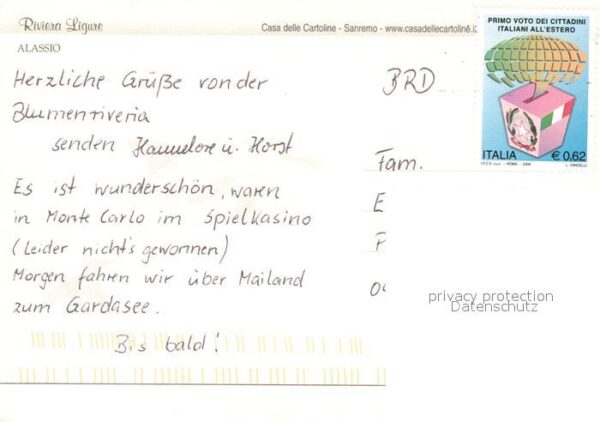 Riviera Ligure
ALASSIO
Casa delle Cartoline - Sanremo - www.casadellecartoline.i
PRIMO VOTO DEI CITTADINI
ITALIANI ALL'ESTERO
ITALIA € 0,62
Herzliche Grüße von der
Blumenriveria
senden Hannelore u. Horst
Es ist wunderschön, waren
in Monte Carlo im Spielkasino
(Leider nicht's gewonnen)
Morgen fahren wir über Mailand
zum Gardasee.
Bis bald!
BRD
Fam.
E
privacy protection
Datenschutz